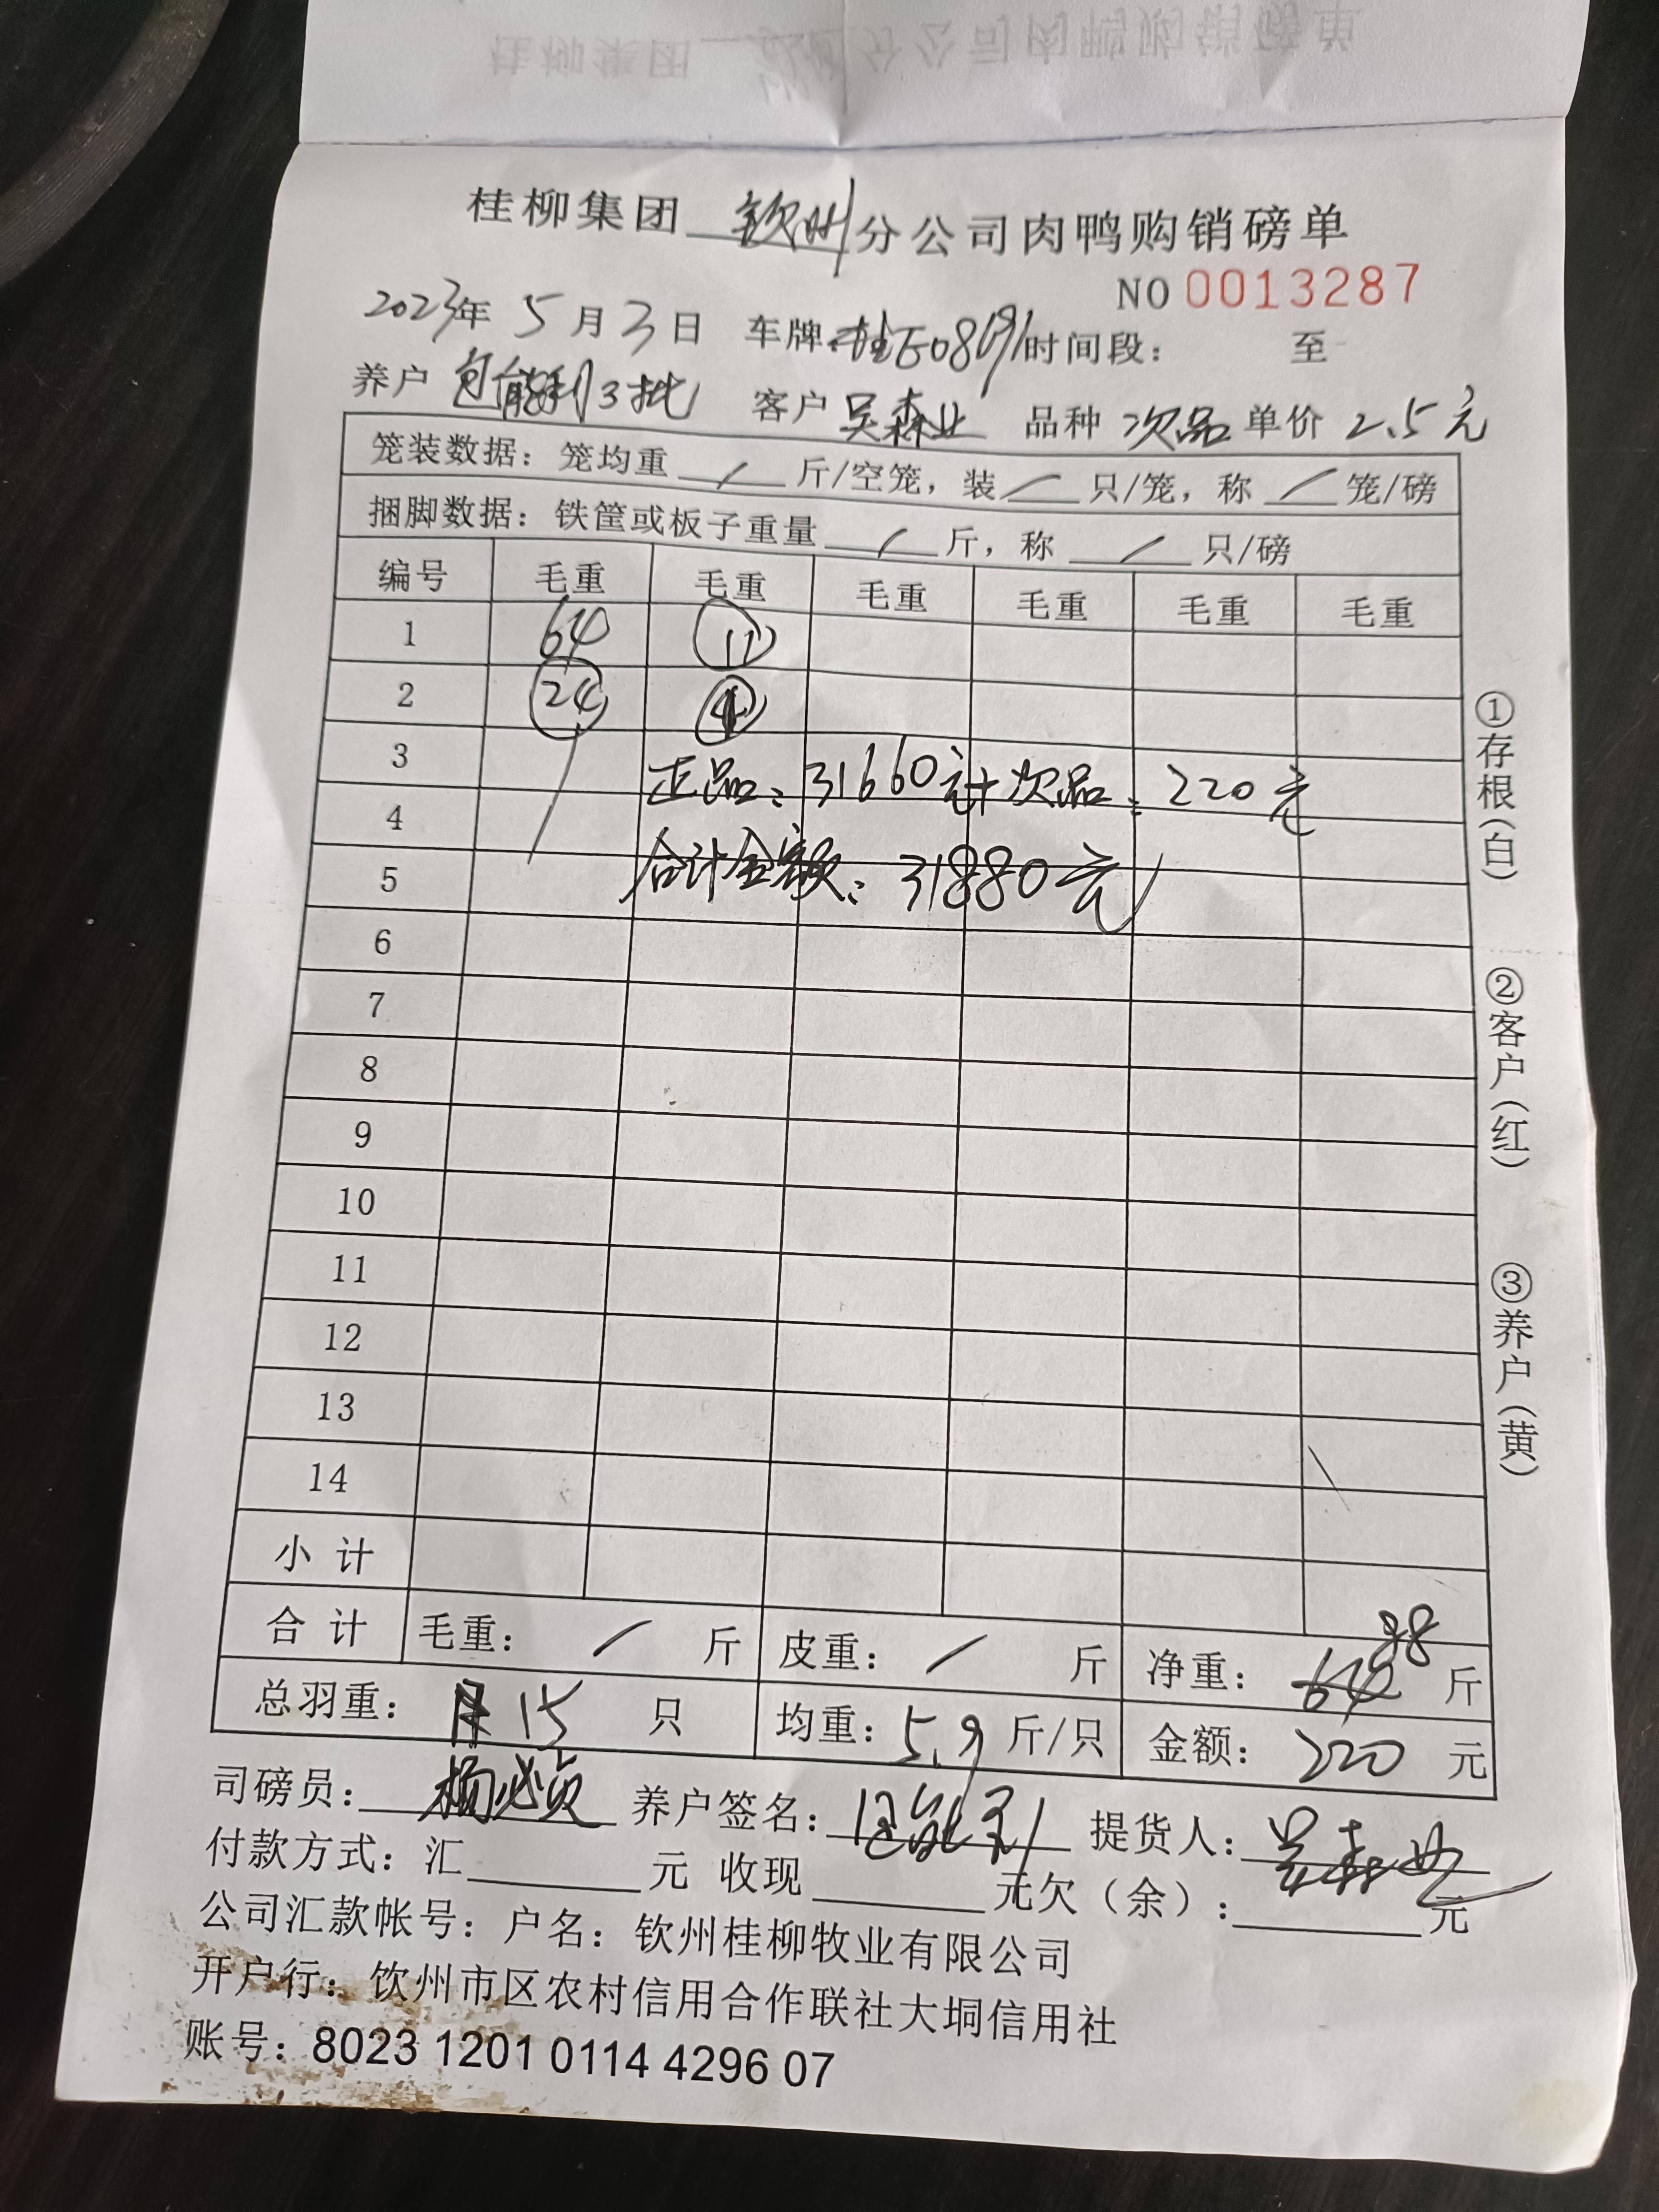 桂柳集团 钦州 分公司肉鸭购销磅单
NO 0013287
2023年 5 月 3 日 车牌: 时间段: 至
养户 包能利3批 客户 吴森业 品种 次品 单价 2.5 元
笼装数据: 笼均重 / 斤/空笼, 装 / 只/笼, 称 / 笼/磅
捆脚数据: 铁筐或板子重量 / 斤, 称 / 只/磅
编号 毛重 毛重 毛重 毛重 毛重 毛重
1 64 11
2 24 4
3 正品: 31660元+次品: 220元
4
5 合计金额: 31880元
6
7
8
9
10
11
12
13
14
小 计
合 计 毛重: / 斤 皮重: / 斤 净重: 88 斤
总羽重: 15 只 均重: 5.9 斤/只 金额: 220 元
司磅员: 养户签名: 包能利 提货人: 吴森业
付款方式: 汇 元 收现 元欠(余): 元
公司汇款帐号: 户名: 钦州桂柳牧业有限公司
开户行: 钦州市区农村信用合作联社大垌信用社
账号: 8023 1201 0114 4296 07
①存根(白)
②客户(红)
③养户(黄)